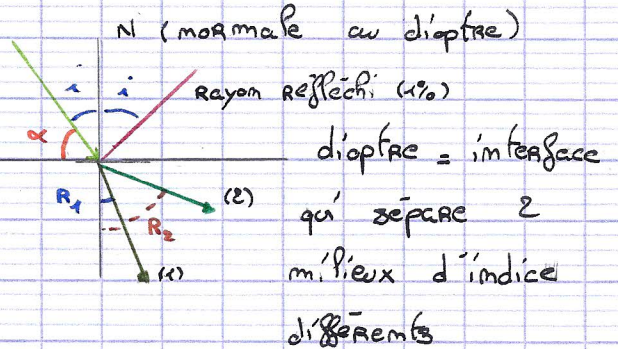 N (normale au dioptre)
i i
Rayon Réfléchi (1%)
α
dioptre = interface
R1 (2)
qui sépare 2
R2
(1)
milieux d'indice
différents